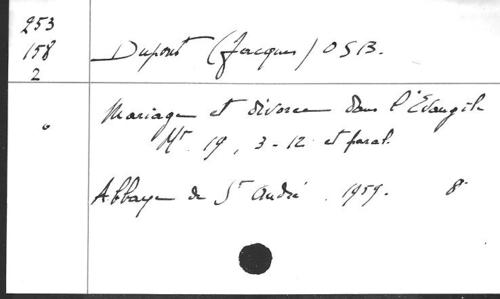 253
158
2
Dupont (Jacques) OSB.
Mariage et divorce dans l'Evangile
Mt. 19, 3-12 et paral.
Abbaye de St André. 1959. 8°